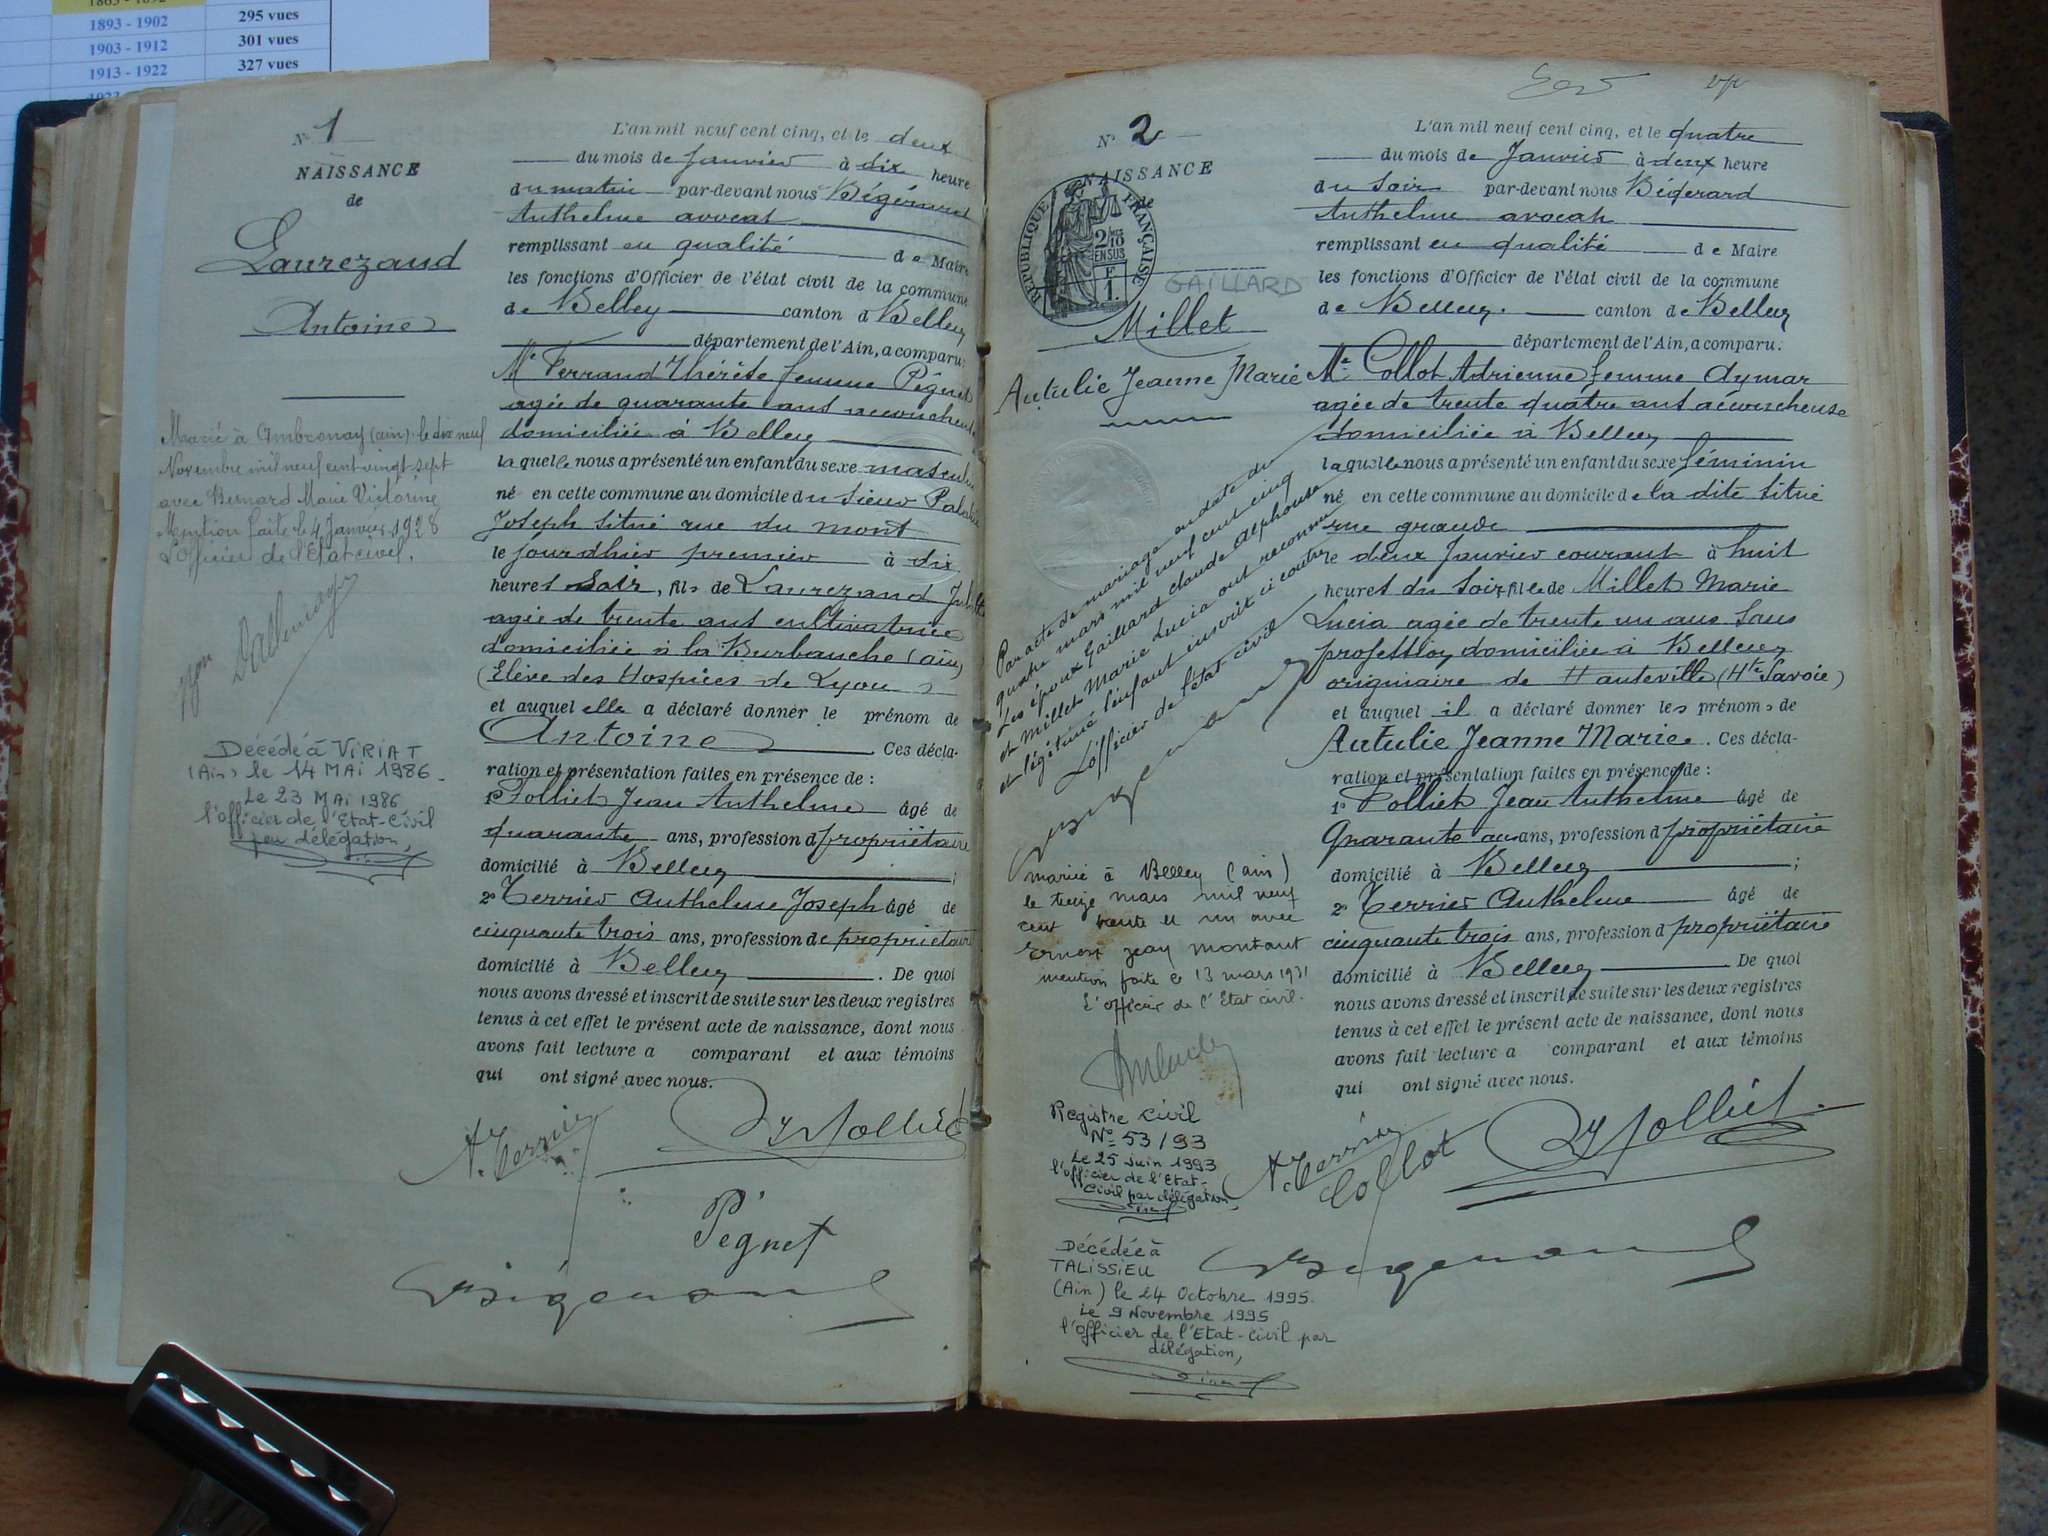 1893 - 1902 295 vues
1903 - 1912 301 vues
1913 - 1922 327 vues
N° 1
NAISSANCE
de
Laurezaud
Antoine
Marié à Ambronay (ain) le dix neuf
Novembre mil neuf cent vingt sept
avec Bernard Marie Victorine
Mention faite le 4 Janvier 1928
L'Officier de l'Etat civil,
Décédé à VIRIAT
(Ain) le 14 MAI 1986_
Le 23 MAI 1986
l'officier de l'Etat-Civil
par délégation,
L'an mil neuf cent cinq, et le deux
du mois de Janvier à dix heure
du matin par-devant nous Bégérard
Anthelme avocat
remplissant en qualité de Maire
les fonctions d'Officier de l'état civil de la commune
de Belley canton d Belley
département de l'Ain, a comparu:
Me Ferrand Thérèse femme Pégnet
agée de quarante ans accoucheuse
domiciliée à Belley
laquelle nous a présenté un enfant du sexe masculin
né en cette commune au domicile du sieur
Joseph situé rue du mont
le jourdhier premier à dix
heures soir, fils de Laurezand
agée de trente ans cultivatrice
domiciliée à la Burbanche (ain)
(Elève des Hospices de Lyon)
et auquel elle a déclaré donner le prénom de
Antoine Ces décla-
ration et présentation faites en présence de :
1° Folliet Jean Anthelme âgé de
quarante ans, profession d propriétaire
domicilié à Belley ;
2° Terrier Anthelme Joseph âgé de
cinquante trois ans, profession de propriétaire
domicilié à Belley . De quoi
nous avons dressé et inscrit de suite sur les deux registres
tenus à cet effet le présent acte de naissance, dont nous
avons fait lecture a comparant et aux témoins
qui ont signé avec nous.
A. Terrier Folliet
Pégnet
Bégérard
N° 2
NAISSANCE
de
RÉPUBLIQUE FRANÇAISE
2/10
EN SUS
F
1.
GAILLARD
Millet
Autulie Jeanne Marie
Par acte de mariage en date du
quatre mars mil neuf cent cinq
Les époux Gaillard Claude Alphonse
et Millet Marie Lucia ont reconnu
et légitimé l'enfant inscrit ci contre
L'officier de l'état civil
mariée à Belley (ain)
le treize mars mil neuf
cent trente et un avec
Ernest Jean Montant
mention faite le 13 mars 1931
L'officier de l'Etat civil.
Registre Civil
N° 53/93
Le 25 Juin 1993
l'officier de l'Etat-
Civil par délégation
Décédée à
TALISSIEU
(Ain) le 24 Octobre 1995.
Le 9 Novembre 1995
l'officier de l'Etat-Civil par
délégation,
L'an mil neuf cent cinq, et le quatre
du mois de Janvier à deux heure
du soir par-devant nous Bégerard
Anthelme avocat
remplissant en qualité de Maire
les fonctions d'Officier de l'état civil de la commune
de Belley. canton de Belley
département de l'Ain, a comparu:
Me Collot Adrienne femme Aymar
agée de trente quatre ans accoucheuse
domiciliée à Belley
laquelle nous a présenté un enfant du sexe féminin
né en cette commune au domicile de la dite situé
rue grande
le deux Janvier courant à huit
heures du soir, fille de Millet Marie
Lucia agée de trente un ans sans
profession, domiciliée à Belley
originaire de Hauteville (Hte Savoie)
et auquel il a déclaré donner les prénoms de
Autulie Jeanne Marie. Ces décla-
ration et présentation faites en présence de :
1° Folliet Jean Anthelme âgé de
Quarante ans ans, profession d propriétaire
domicilié à Belley ;
2° Terrier Anthelme âgé de
cinquante trois ans, profession d propriétaire
domicilié à Belley De quoi
nous avons dressé et inscrit de suite sur les deux registres
tenus à cet effet le présent acte de naissance, dont nous
avons fait lecture a comparant et aux témoins
qui ont signé avec nous.
A. Terrier Collot Folliet
Bégérard